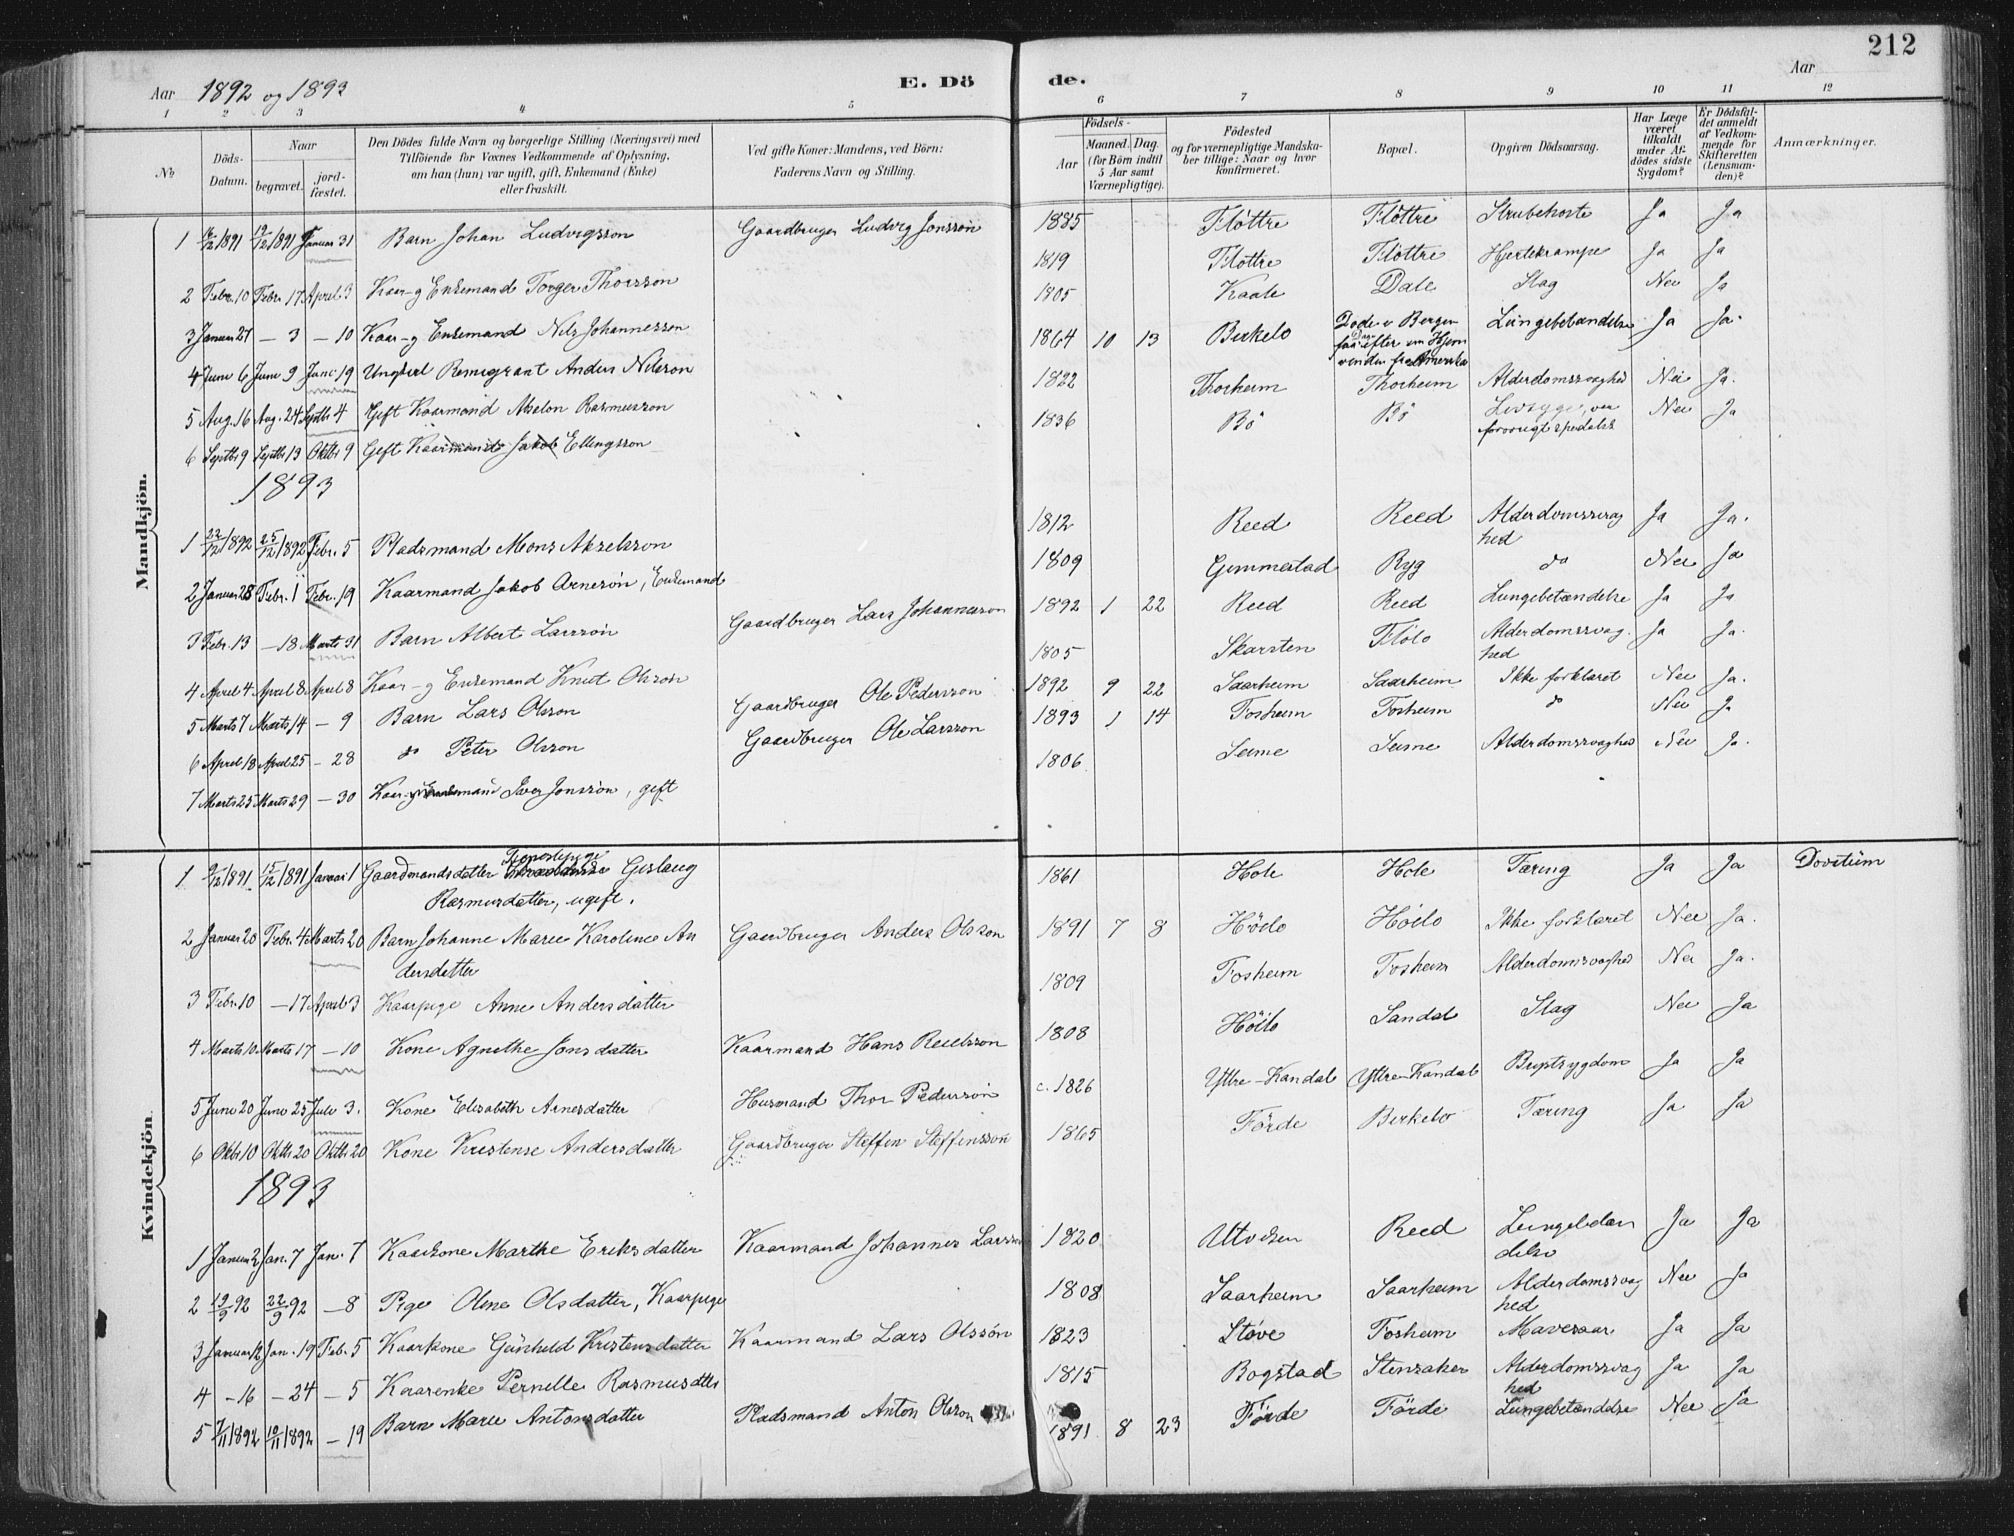 212
Aar 1892 og 1893
E. Dö
de.
Aar
1 2 3 4 5 6 7 8 9 10 11 12
No
Döds-Datum.
Naar
begravet.
jord-fæstet.
Den Dödes fulde Navn og borgerlige Stilling (Næringsvei) med
Tilföiende for Voxnes Vedkommende af Oplysning,
om han (hun) var ugift, gift, Enkemand (Enke)
eller fraskilt.
Ved gifte Koner: Mandens, ved Börn:
Faderens Navn og Stilling.
Födsels-
Aar
Maaned. Dag.
(for Börn indtil
5 Aar samt
Værnepligtige).
Födested
og for værnepligtige Mandska-
ber tillige: Naar og hvor
konfirmeret.
Bopæl.
Opgiven Dödsaarsag.
Har Læge
været
tilkaldt
under Af-
dödes sidste
Sygdom?
Er Dödsfal-
det anmeldt
af Vedkom-
mende for
Skifteretten
(Lensman-
den)?
Anmærkninger.
Mandkjön.
1 12/1891 19/12 1891 Januar 31 Barn Johan Ludvigsson Gaardbruger Ludvig Jonsson 1885 Flöttre Flöttre Strubehoste Ja Ja
2 Febr. 10 Febr. 17 April 3 Kaar- og Enkemand Torger Thorsson 1819 Flöttre Flöttre Hjertekrampe Ja Ja
3 Januar 27 — 3 — 10 Kaar- og Enkemand Nils Johannesson 1805 Kaale Dale Slag Nei Ja
4 Juni 6 Juni 9 Juni 19 Ungkarl Remigrant Anders Nilsson 1864 10 13 Birkelo Döde i Bergen
faa Dage efter sin Hjem
venden fra Amerika Lungebetændelse Ja Ja.
5 Aug. 16 Aug. 24 Septbr 4 Gift Kaarmand Absolon Rasmusson 1822 Thorheim Thorheim Alderdomssvaghed Nei Ja.
6 Septbr 9 Septbr 13 Oktbr 9 Gift Kaarmand Jakob Ellingsson 1836 Bö Bö forövrigt spedalsk Nei Ja
1893
1 22/12 1892 25/12 1892 Febr. 5 Pladsmand Mons Akselsson 1812 Reed Reed Alderdomssvag
hed Ja Ja.
2 Januar 28 Febr. 1 Febr. 19 Kaarmand Jakob Arnesön, Enkemand 1809 Gimmestad Ryg do Nei Ja
3 Febr. 13 — 18 Marts 31 Barn Albert Larsson Gaardbruger Lars Johannesson 1892 1 22 Reed Reed Lungebetændelse Ja Ja
4 April 4 April 8 April 8 Kaar- og Enkemand Knut Olsson 1805 Skarsten Flölo Alderdomssvag.
hed Ja Ja.
5 Marts 7 Marts 14 — 9 Barn Lars Olsson Gaardbruger Ole Pedersson 1892 9 22 Saarheim Saarheim Ikke forklaret Nei Ja.
6 April 18 April 25 — 28 do Peter Olsson Gaardbruger Ole Larsson 1893 1 14 Fosheim Fosheim do Nei Ja
7 Marts 25 Marts 29 — 30 Kaar- og Enkemand Iver Jonsson, gift 1806 Seime Seime Alderdomssvaghed Nei Ja.
Kvindekjön.
1 9/12 1891 15/12 1891 Januar 1 Gaardmandsdatter Tjenestepige Gislaug
Rasmusdatter, ugift. 1861 Hole Hole Tæring Ja Ja Dövstum
2 Januar 20 Febr. 4 Marts 20 Barn Johanne Marie Karoline An
dersdatter Gaardbruger Anders Olsson 1891 7 8 Hölo Hölo Ikke forklaret Nei Ja.
3 Febr. 10 — 17 April 3 Kaarpige Anne Andersdatter 1809 Fosheim Fosheim Alderdomssvaghed Nei Ja.
4 Marts 10 Marts 17 — 10 Kone Agnethe Jonsdatter Kaarmand Hans Reielsson 1808 Hölo Sandal Slag Nei Ja
5 Juni 20 Juni 25 Juli 3. Kone Elisabeth Arnesdatter Husmand Thor Pedersson c. 1826 Yttre-Kandal Yttre-Kandal Brystsygdom Ja Ja
6 Oktbr 10 Oktbr 20 Oktbr 20 Kone Kristense Andersdatter Gaardbruger Steffen Steffensson 1865 Förde Birkelo Tæring Ja Ja
1893
1 Januar 2 Jan. 7 Jan. 7 Kaarkone Marthe Eriksdatter Kaarmand Johannes Larsson 1820 Utviken Reed Lungebetæn
delse Ja Ja
2 19/9 92 22/9 92 — 8 Pige Oline Olsdatter, Kaarpige 1808 Saarheim Saarheim Alderdomssvag
hed Nei Ja
3 Januar 12 Jan. 19 Feb. 5 Kaarkone Gunhild Kristensdatter Kaarmand Lars Olsson 1823 Stöve Fosheim Mavesaar Ja Ja
4 — 16 — 24 — 5 Kaarenke Pernille Rasmusdtr 1815 Bogstad Stensaker Alderdomssvag
hed Ja Ja
5 7/11 1892 10/11 1892 — 19 Barn Marie Antonsdatter Pladsmand Anton Olsson 1891 8 23 Förde Förde Lungebetændelse Nei Ja